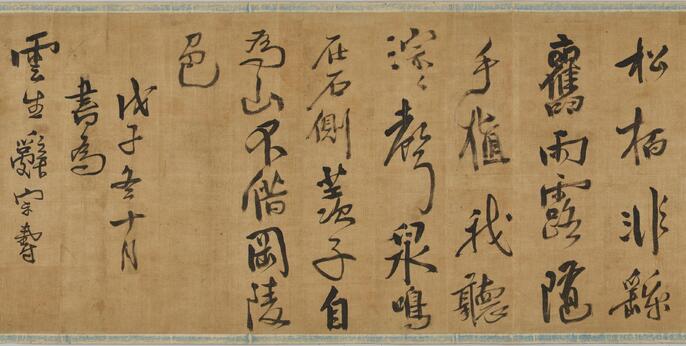 松栢非繇
舊雨露隨
手植我聽
淙々聲泉鳴
在石側黃子自
為山不借岡陵
色
戊子冬十月
書為
雲生辭宗壽